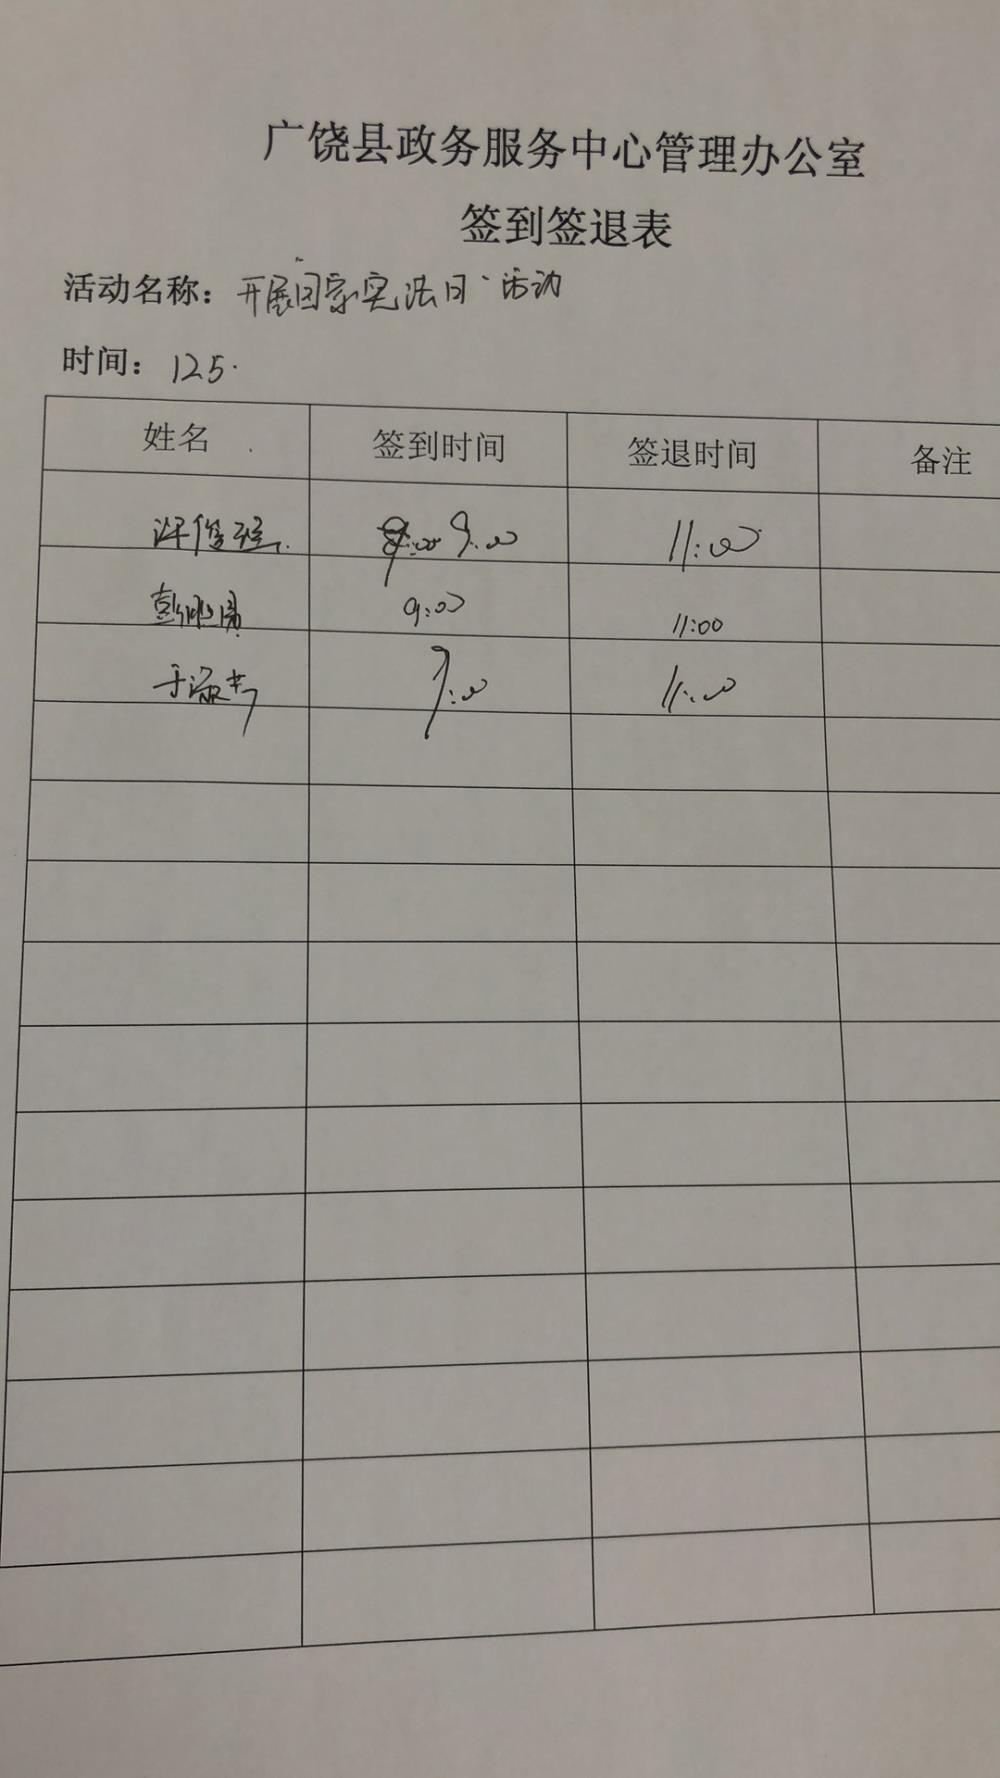 广饶县政务服务中心管理办公室
签到签退表
活动名称：开展国家宪法日活动
时间：125.
姓名 签到时间 签退时间 备注
9:00 11:00
9:00 11:00
9:00 11:00